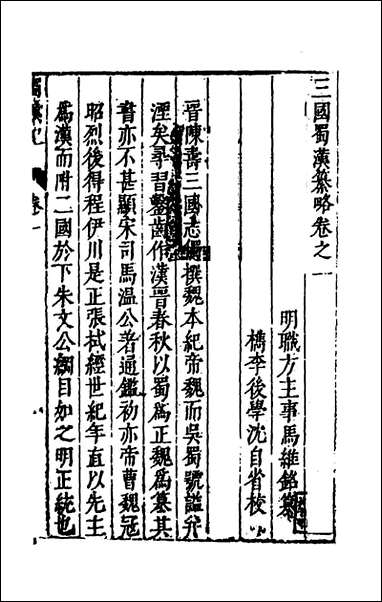 三國蜀漢纂略卷之一
明職方主事馬維銘纂
檇李後學沈自省校
晉陳壽三國志獨撰魏本紀帝魏而吳蜀號謚弁
湮矣尋習鑿齒作漢晉春秋以蜀為正魏為篡其
書亦不甚顯宋司馬温公著通鑑初亦帝曹魏冠
昭烈後得程伊川是正張栻經世紀年直以先主
爲漢而附二國於下朱文公綱目如之明正統也
卷一